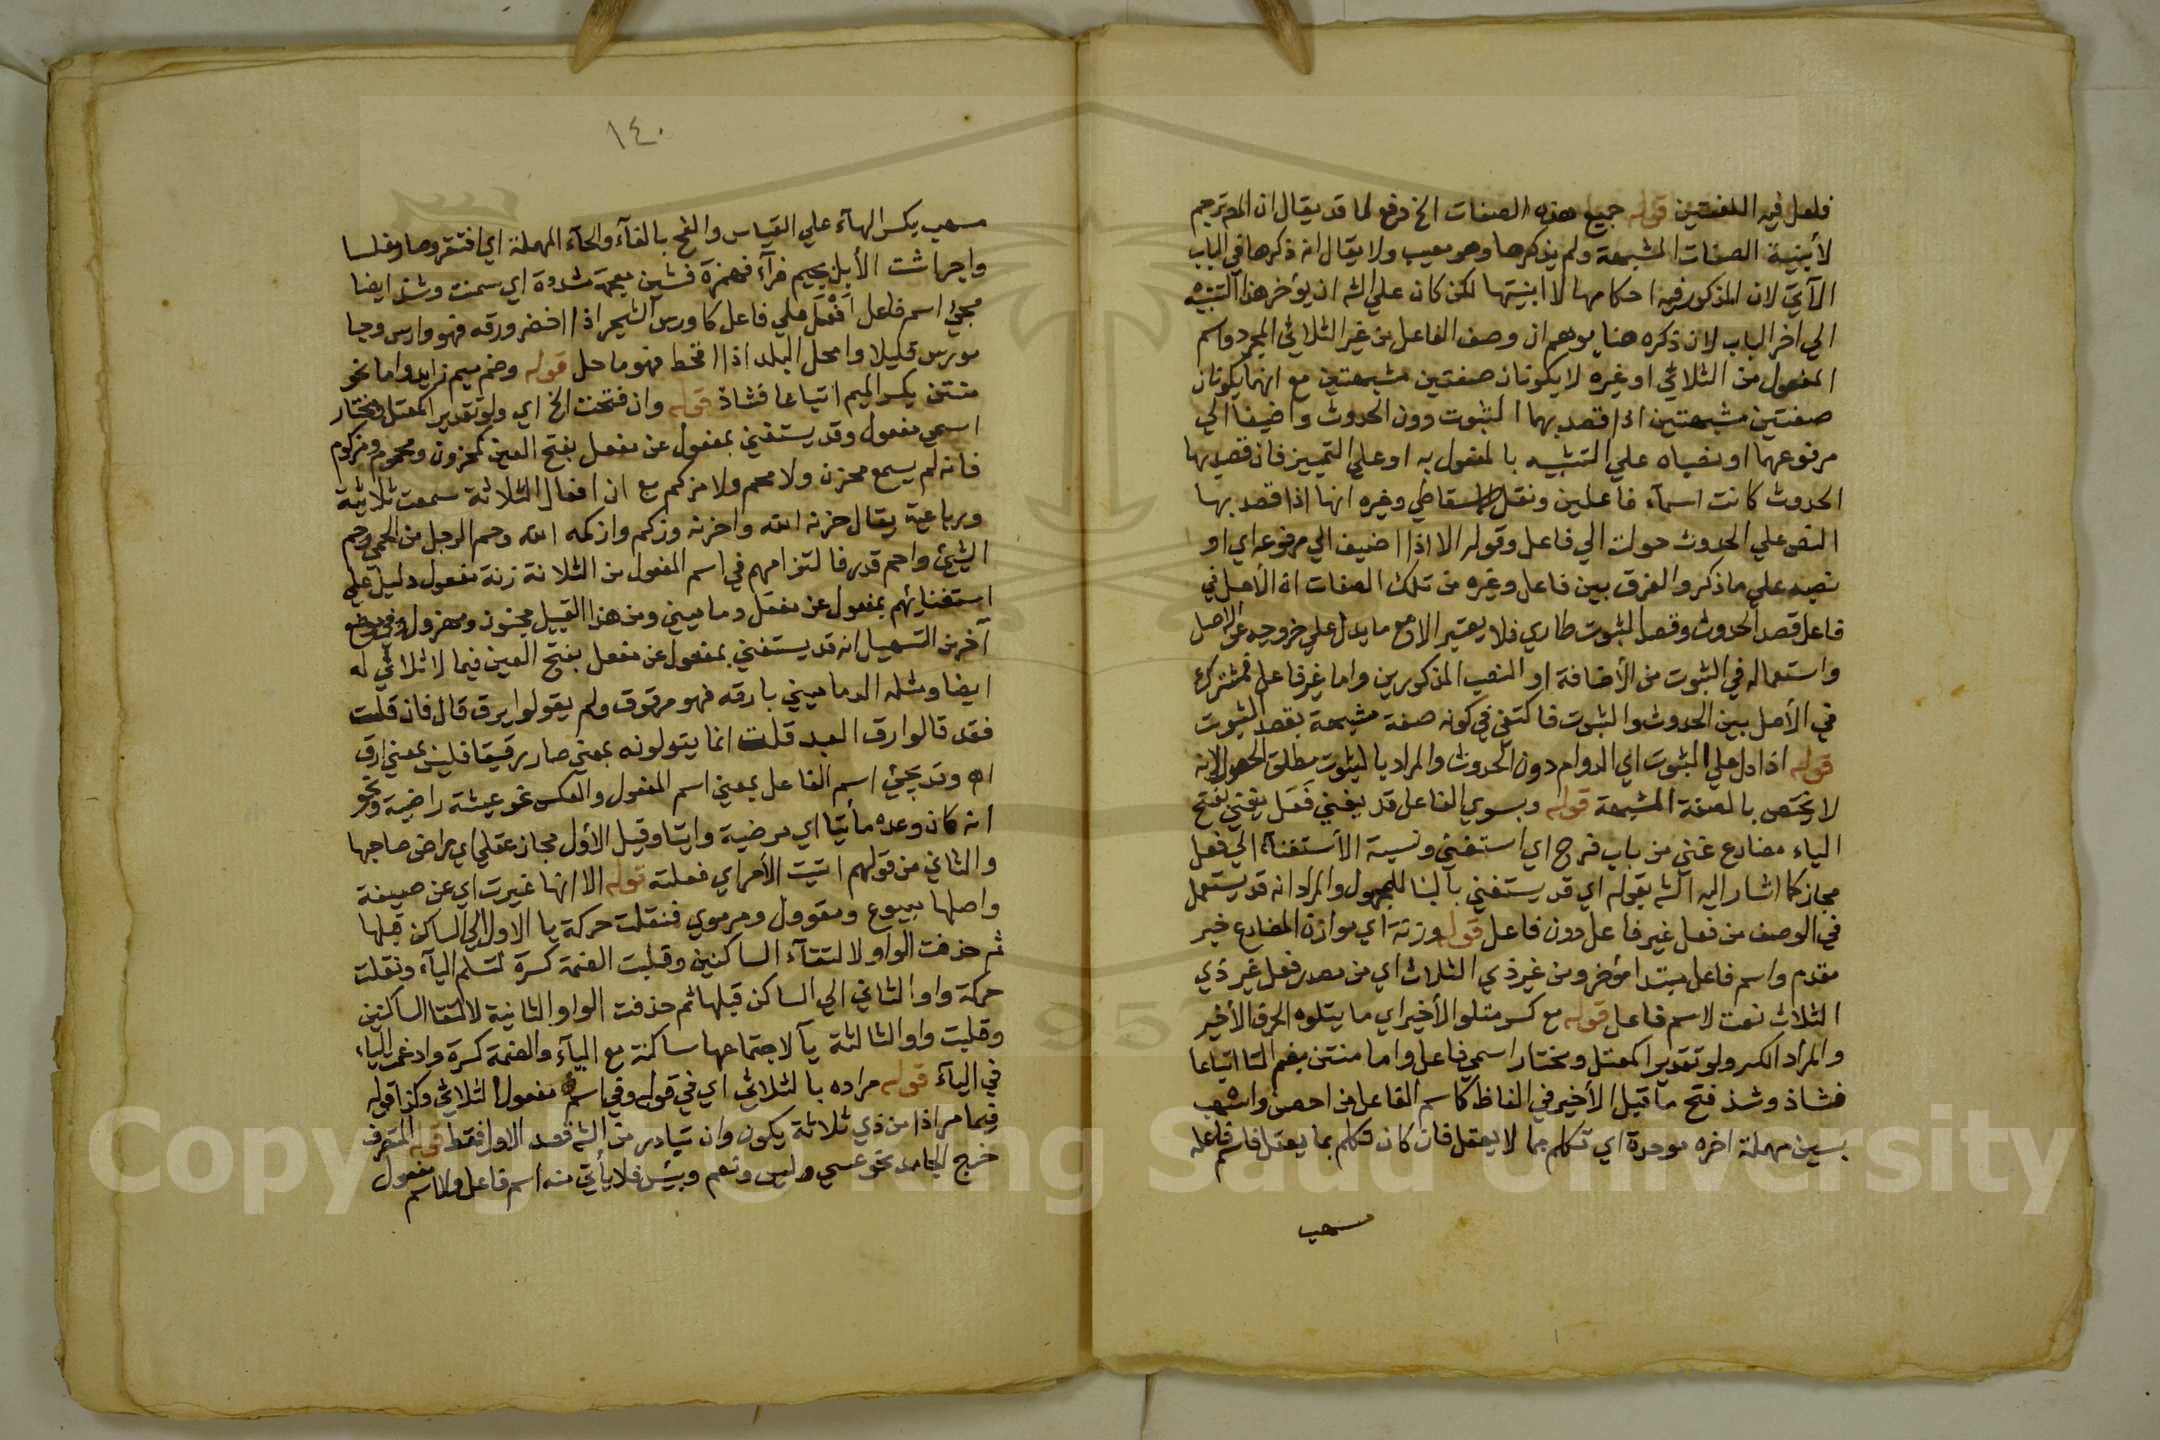 فلعل فيه اللغتين قوله جميع هذه الصفات الخ دفع لما قد يقال ان المص ترجم
لأبنية الصفات المشبهة ولم يذكرها وهو معيب ولا يقال انه ذكرها في الباب
الآتي لان المذكور فيه احكامها لا ابنيتها لكن كان علي الش ان يؤخر هذا التنبيه
الي اخر الباب لان ذكره هنا يوهم ان وصف الفاعل من غير الثلاثي المجرد واسم
المفعول من الثلاثي او غيره لا يكونان صفتين مشبهتين مع انهما يكونان
صفتين مشبهتين اذا قصد بهما الثبوت دون الحدوث واضيفا الي
مرفوعهما او نصباه علي التشبيه بالمفعول به او علي التمييز فان قصد بها
الحدوث كانت اسماء فاعلين ونقل الاسقاطي وغيره انها اذا قصد بها
النص علي الحدوث حولت الي فاعل وقوله الا اذا اضيف الي مرفوعه اي او
نصبه علي ما ذكر والفرق بين فاعل وغيره من تلك الصفات ان الأصل في
فاعل قصد الحدوث وقصد الثبوت طاري فلا يعتبر الا مع ما يدل علي خروجه عن الاصل
واستعماله في الثبوت من الأضافة او النصب المذكورين واما غير فاعل فمشترك
في الأصل بين الحدوث والثبوت فاكتفي في كونه صفة مشبهة بقصد الثبوت
قوله اذا دل علي الثبوت اي الدوام دون الحدوث والمراد بالثبوت مطلق الحصول لانه
لا يختص بالصفة المشبهة قوله وبسوي الفاعل قد يغني فَعَل يغني بفتح
الياء مضارع غني من باب فرح اي استغني ونسبة الأستغناء الي فعل
مجاز كما اشار اليه الش بقوله اي قد يستغني بالبنا للمجهول والمراد انه قد يستعمل
في الوصف من فعل غير فاعل دون فاعل قوله وزنة اي موازن المضارع خبر
مقدم واسم فاعل مبتدا مؤخر ومن غير ذي الثلاث اي من مصدر فعل غير ذي
الثلاث نعت لاسم فاعل قوله مع كسر متلو الأخير اي ما يتلوه الحرف الأخير
والمراد الكسر ولو تقديرا كمعتل ومختار اسمي فاعل واما منتن بضم التا اتباعا
فشاذ وشذ فتح ما قبل الأخير في الفاظ كاسم الفاعل من احصن واسهب
بسين مهملة اخره موحدة اي تكلم بما لا يعقل فان كان تكلم بما يعقل فاسم فاعله
مسهب
١٤٠
مسهب بكسر الهاء علي القياس والفج بالفاء والحاء المهملة اي افتقر وصار مفلسا
واجراشت الأبل بجيم فراء فهمزة فشين معجمة مشددة اي سمنت وشذ ايضا
مجئ اسم فاعل اَفْعَلَ علي فاعل كاورس الشجر اذا اخضر ورقه فهو وارس وجا
مورس قليلا وامحل البلد اذا اقحط فهو ماحل قوله وضم ميم زايد واما نحو
منتن بكسر الميم اتباعا فشاذ قوله وان فتحت الخ اي ولو تقديرا كمعتل ومختار
اسمي مفعول وقد يستغني بمفعول عن مفعل بفتح العين كمحزون ومحموم ومزكوم
فانه لم يسمع محزن ولا محم ولا مزكم مع ان افعال الثلاثة سمعت ثلاثية
ورباعية يقال حزنه الله واحزنه وزكمه وازكمه الله وحم الرجل من الحمي وحم
الشيئ واحم قدر فالتزامهم في اسم المفعول من الثلاثة زنة مفعول دليل علي
استغنائهم بمفعول عن مفعل دماميني ومن هذا القبيل مجنون ومهزول وفي موضع
آخر من التسهيل انه قد يستغني بمفعول عن مفعل بفتح العين فيما لا ثلاثي له
ايضا ومثله الدماميني بارقه فهو مرقوق ولم يقولوا يرق قال فان قلت
فقد قالوا رق العبد قلت انما يقولونه بمعني صار رقيقا فليس بمعني ارق
اه وقد يجئ اسم الفاعل بمعني اسم المفعول والعكس نحو عيشة راضية ونحو
انه كان وعده مأتيا اي مرضية وآتيا وقيل الأول مجاز عقلي اي راض صاحبها
والثاني من قولهم اتيت الأمر اي فعلته قوله الا انها غيرت اي عن صيغة
واصلها مبيوع ومقوول ومرموي فنقلت حركة يا الاول الي الساكن قبلها
ثم حذفت الواو لالتقاء الساكنين وقلبت الضمة كسرة لتسلم الياء ونقلت
حركة واو الثاني الي الساكن قبلها ثم حذفت الواو الثانية لالتقا الساكنين
وقلبت واو الثالثة يآ لاجتماعها ساكنة مع الياء والضمة كسرة وادغمت الياء
في الياء قوله مراده بالثلاثي اي في قوله وفي اسم مفعول الثلاثي وكذا قوله
فيما مر اذا من ذي ثلاثة يكون وان تبادر من الش قصد الاول فقط قوله المتصرف
خرج الجامد نحو عسي وليس ونعم وبئس فلا يأتي منه اسم فاعل ولا اسم مفعول
Copyright © King Saud University
1957